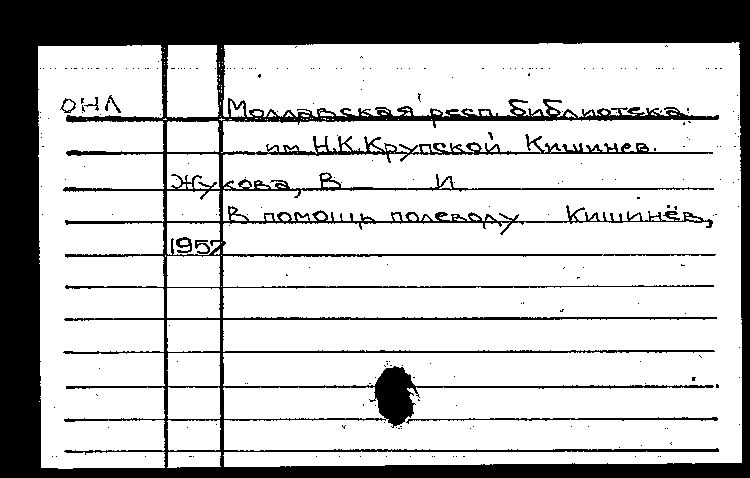 ОНЛ Молдавская респ. библиотека
им. Н.К.Крупской. Кишинев.
Жукова, В И.
В помощь полеводу. Кишинёв,
1957